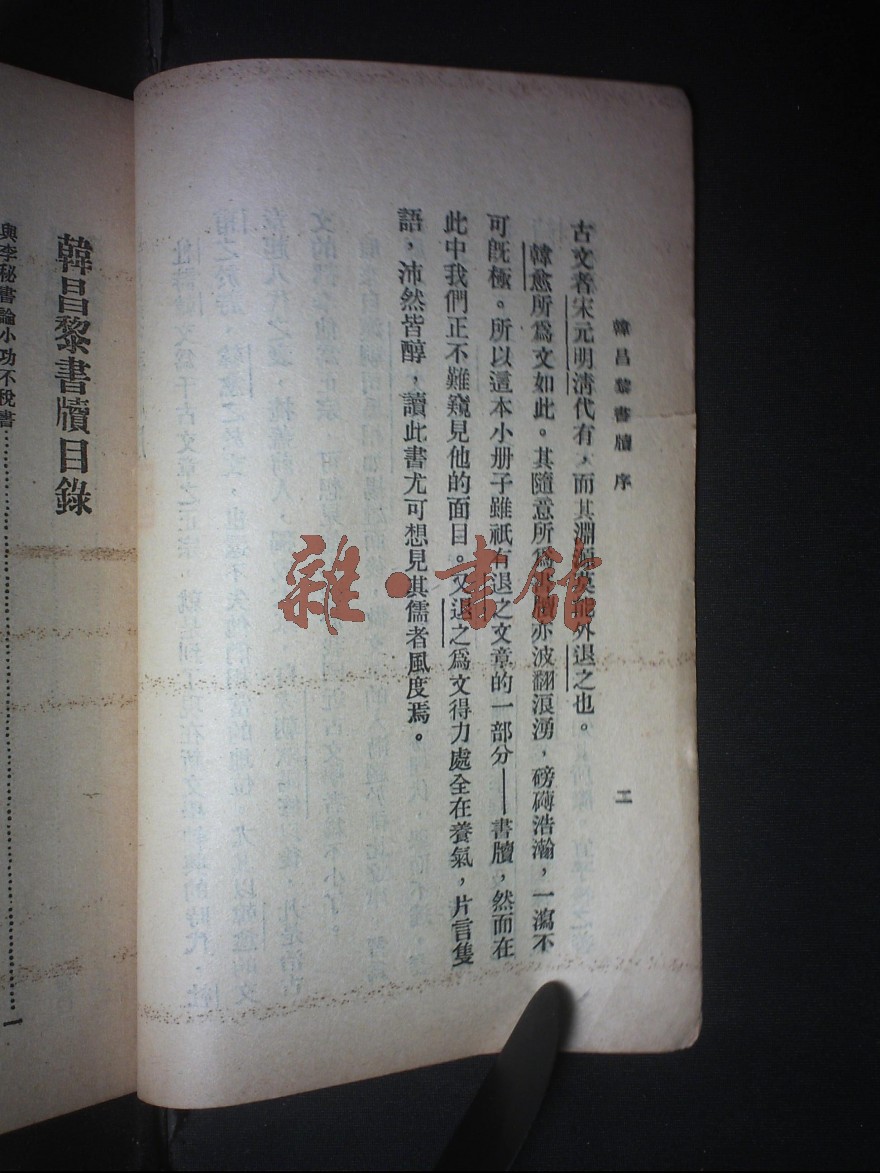 韓昌黎書牘 序
二
古文者宋元明清代有人而其淵源莫能外退之也。
韓愈所爲文如此。其隨意所爲書牘亦波翻浪湧，磅礡浩瀚，一瀉不
可旣極。所以這本小册子雖祇有退之文章的一部分——書牘，然而在
此中我們正不難窺見他的面目。又退之爲文得力處全在養氣，片言隻
語，沛然皆醇，讀此書尤可想見其儒者風度焉。
韓昌黎書牘目錄
與李秘書論小功不稅書……………………一
雜·書館